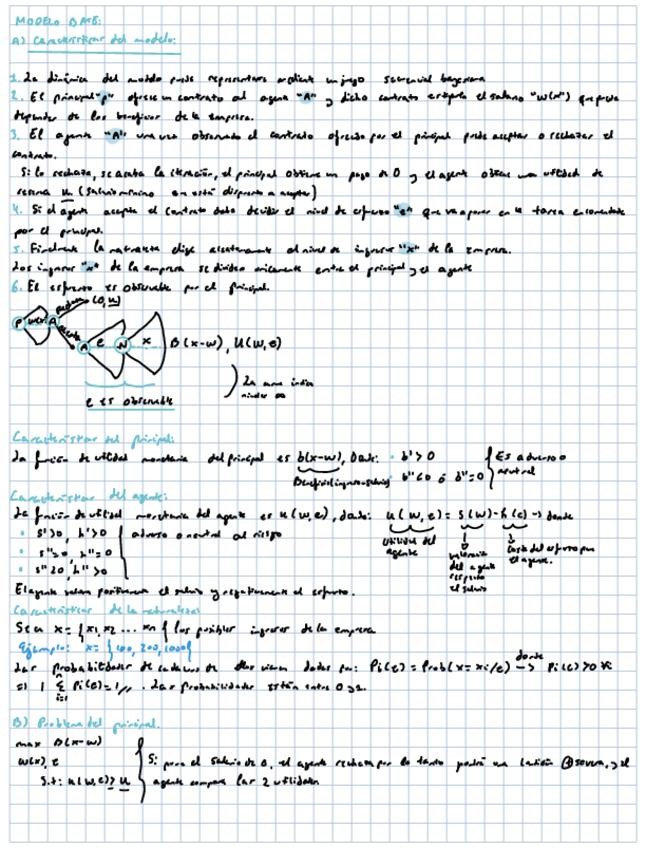 MODELO BASE:
A) Características del modelo:
1. La dinámica del modelo puede representarse mediante un juego secuencial bayesiano
2. El principal "P" ofrece un contrato al agente "A" y dicho contrato estipula el salario "w(x)") que puede
depender de los beneficios de la empresa.
3. El agente "A" una vez observado el contrato ofrecido por el principal puede aceptar o rechazar el
contrato.
Si lo rechaza, se acaba la iteración, el principal obtiene un pago de 0 y el agente obtiene una utilidad de
reserva u (salario mínimo en está dispuesto a aceptar)
4. Si el agente acepta el contrato debe decidir el nivel de esfuerzo "e" que va a poner en la tarea encomendada
por el principal.
5. Finalmente la naturaleza elige aleatoriamente al nivel de ingresos "x" de la empresa.
Los ingresos "x" de la empresa se dividen únicamente entre el principal y el agente
6. El esfuerzo es observable por el principal.
P w(x) A rechaza (0, u)
acepta A e N x B(x-w), U(w,e)
e es observable
La curva indica
niveles ∞
Características del principal:
La función de utilidad monetaria del principal es b(x-w), Donde: • b' > 0
• b'' < 0 ó b'' = 0
Es adverso o
neutral
Características del agente:
La función de utilidad monetaria del agente es u(w,e), donde: u(w,e) = s(w) - h(e) → donde
Utilidad del
agente
valoración
del agente
respecto
el salario
Coste del esfuerzo para
el agente.
• s' > 0, h' > 0
adverso o neutral al riesgo
El agente valora positivamente el salario y negativamente el esfuerzo.
Características de la naturaleza:
Sea x = {x1, x2 ... xn} los posibles ingresos de la empresa
Ejemplo: x = {100, 200, 1000}
Las probabilidades de cada uno de ellos vienen dadas por: Pi(e) = Prob(x = xi/e) donde → Pi(e) > 0 ∀i
Σ Pi(e) = 1 // . Las probabilidades están entre 0 y 1.
B) Problema del principal.
max B(x-w)
w(x), e
s.t: u(w,e) ≥ u
Si pone el salario de 0, el agente rechaza por lo tanto pondrá una
agente compara las 2 utilidades